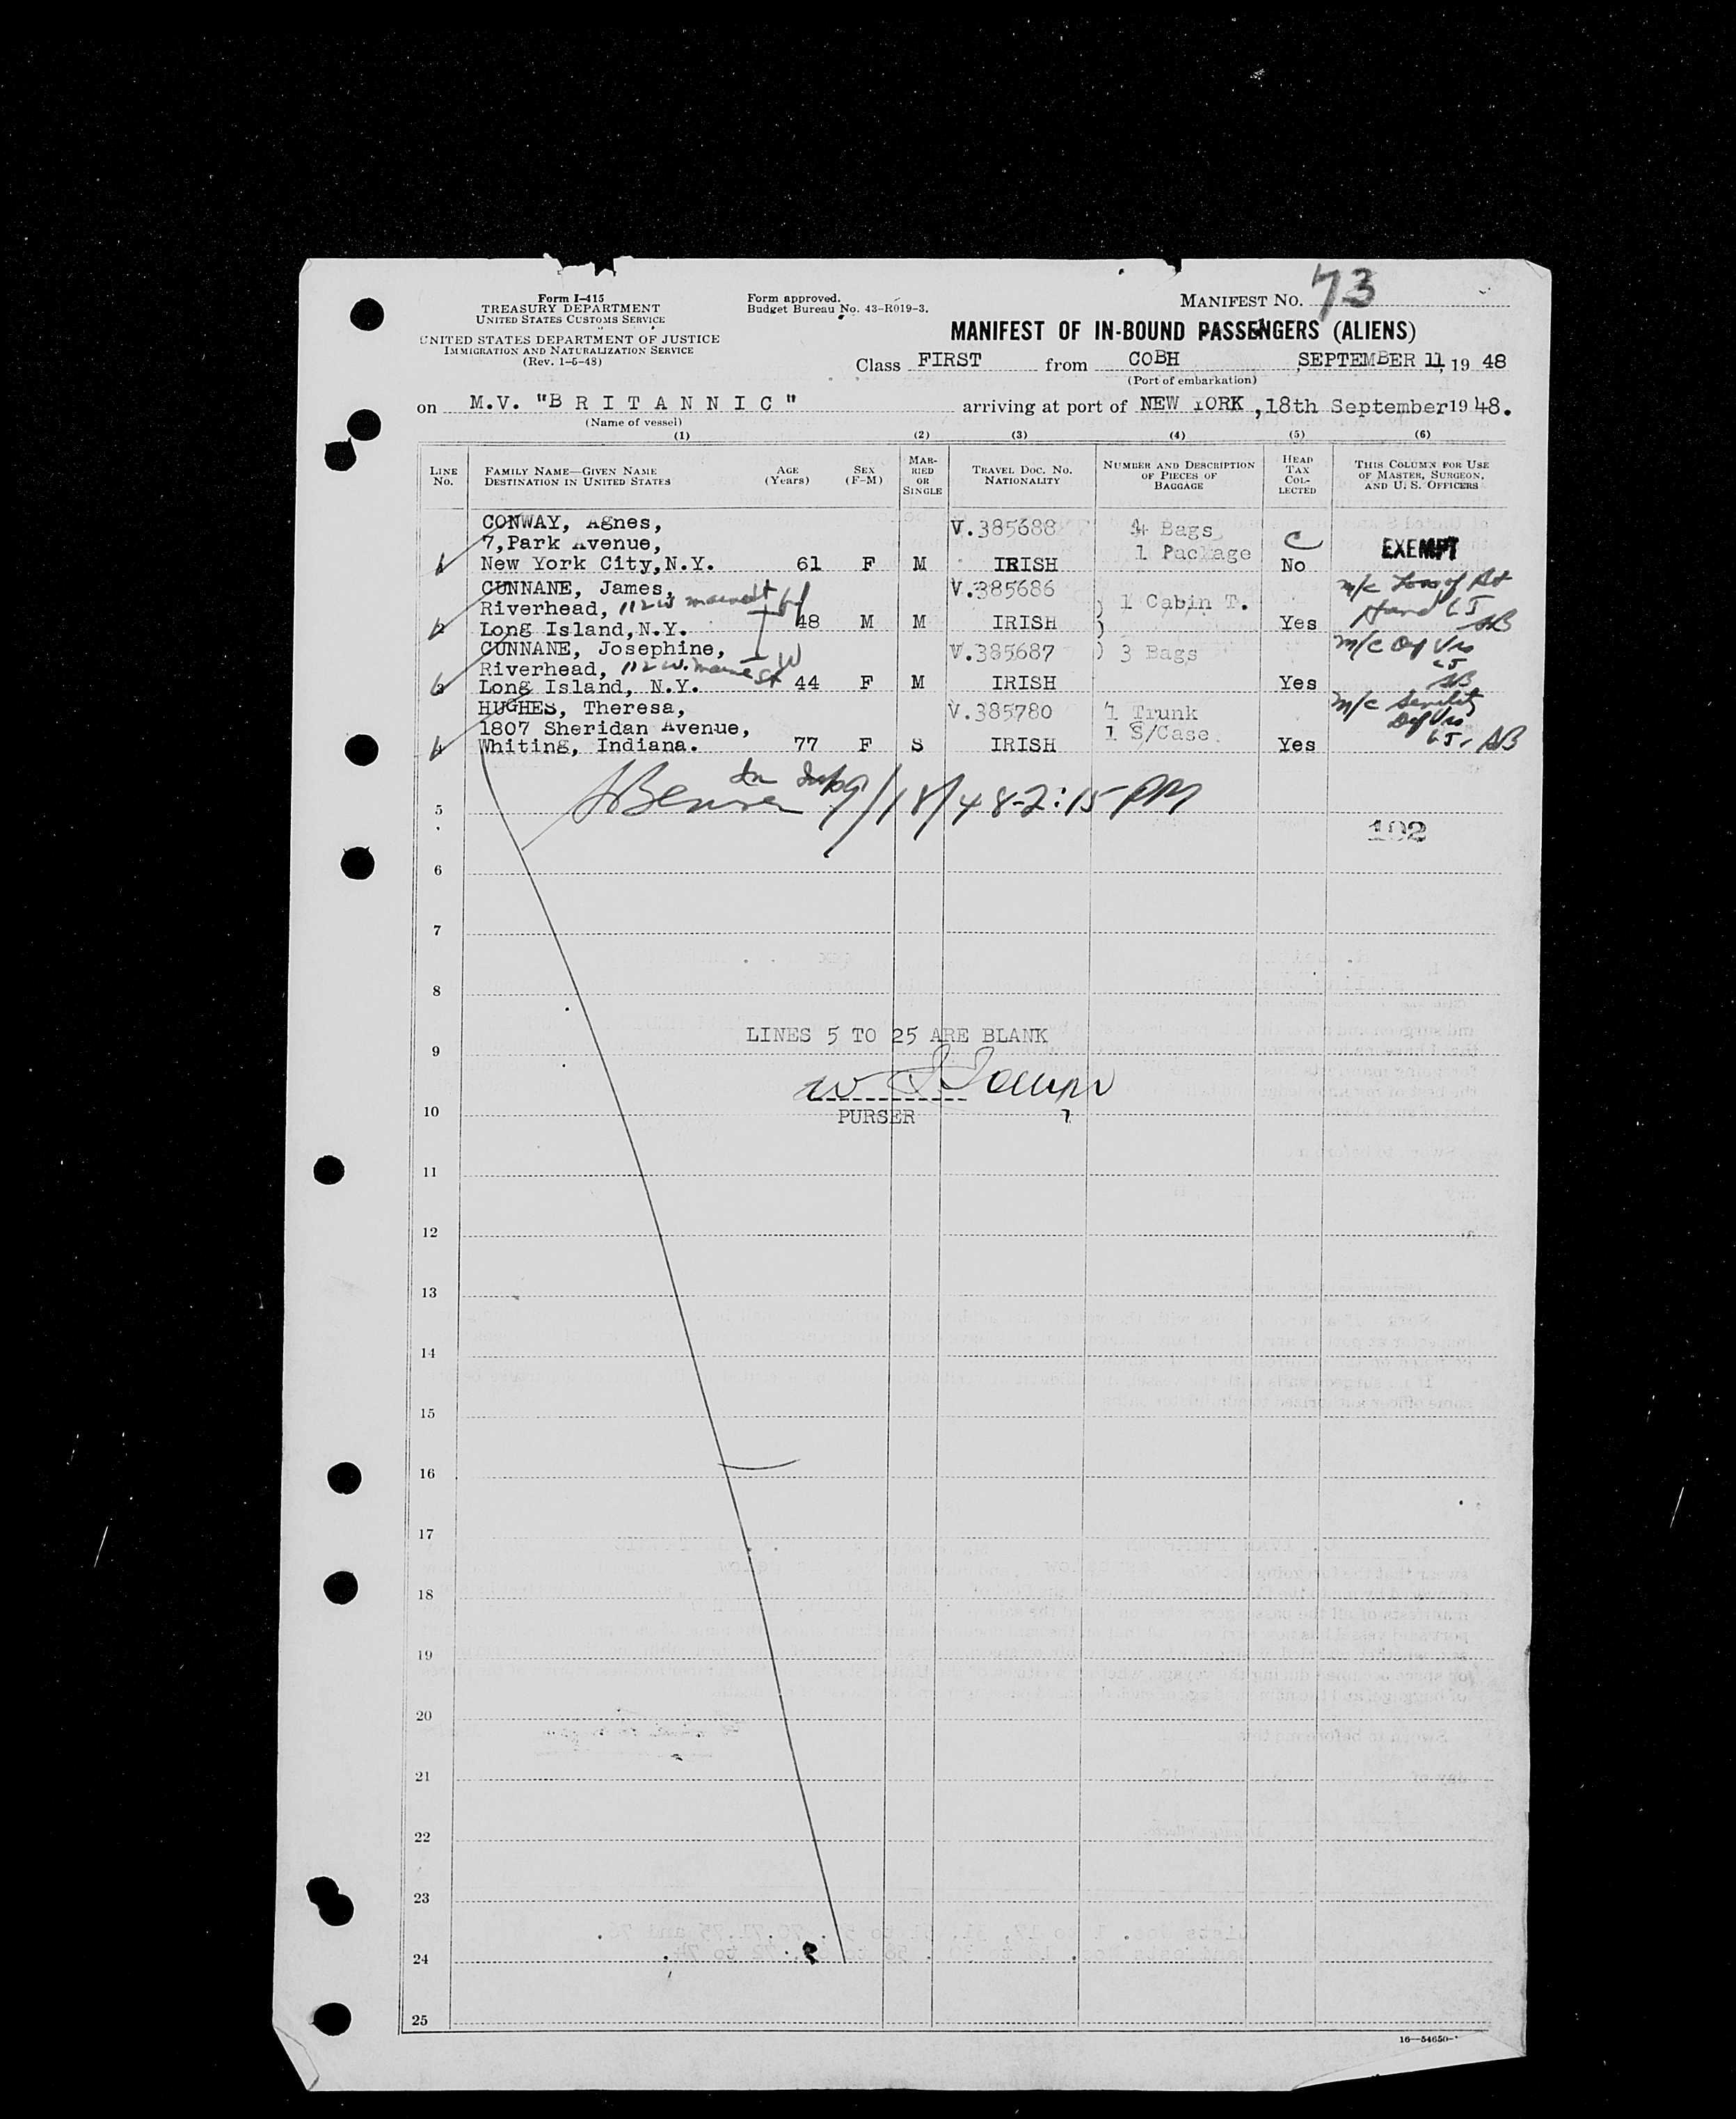 Form I-415
TREASURY DEPARTMENT
UNITED STATES CUSTOMS SERVICE
UNITED STATES DEPARTMENT OF JUSTICE
IMMIGRATION AND NATURALIZATION SERVICE
(Rev. 1-6-48)
Form approved.
Budget Bureau No. 43-R019-3.
MANIFEST NO. 73
MANIFEST OF IN-BOUND PASSENGERS (ALIENS)
Class FIRST from COBH, SEPTEMBER 11, 19 48
(Port of embarkation)
on M.V. "BRITANNIC" arriving at port of NEW YORK, 18th September 1948.
(Name of vessel)
(1) (2) (3) (4) (5) (6)
LINE No. FAMILY NAME—GIVEN NAME DESTINATION IN UNITED STATES AGE (Years) SEX (F-M) MARRIED OR SINGLE TRAVEL DOC. NO. NATIONALITY NUMBER AND DESCRIPTION OF PIECES OF BAGGAGE HEAD TAX COLLECTED THIS COLUMN FOR USE OF MASTER, SURGEON, AND U. S. OFFICERS
CONWAY, Agnes, V.385688 4 Bags
7,Park Avenue, 1 Package C EXEMPT
1 New York City,N.Y. 61 F M IRISH No
CUNNANE, James, V.385686 m/c Loss of Rt
Riverhead, 112 W main st ) 1 Cabin T. Hand LJ
2 Long Island,N.Y. 48 M M IRISH ) Yes AB
CUNNANE, Josephine, V.385687 ) 3 Bags m/c Def Vis
Riverhead, 112 W. main St W LJ
3 Long Island, N.Y. 44 F M IRISH Yes AB
HUGHES, Theresa, V.385780 1 Trunk m/c Senility
1807 Sheridan Avenue, 1 S/Case. Def Vis
4 Whiting, Indiana. 77 F S IRISH Yes LJ, AB
9/18/48-2:15 PM
5
102
6
7
8
LINES 5 TO 25 ARE BLANK
9
10 PURSER
11
12
13
14
15
16
17
18
19
20
21
22
23
24
25
16—54650-1